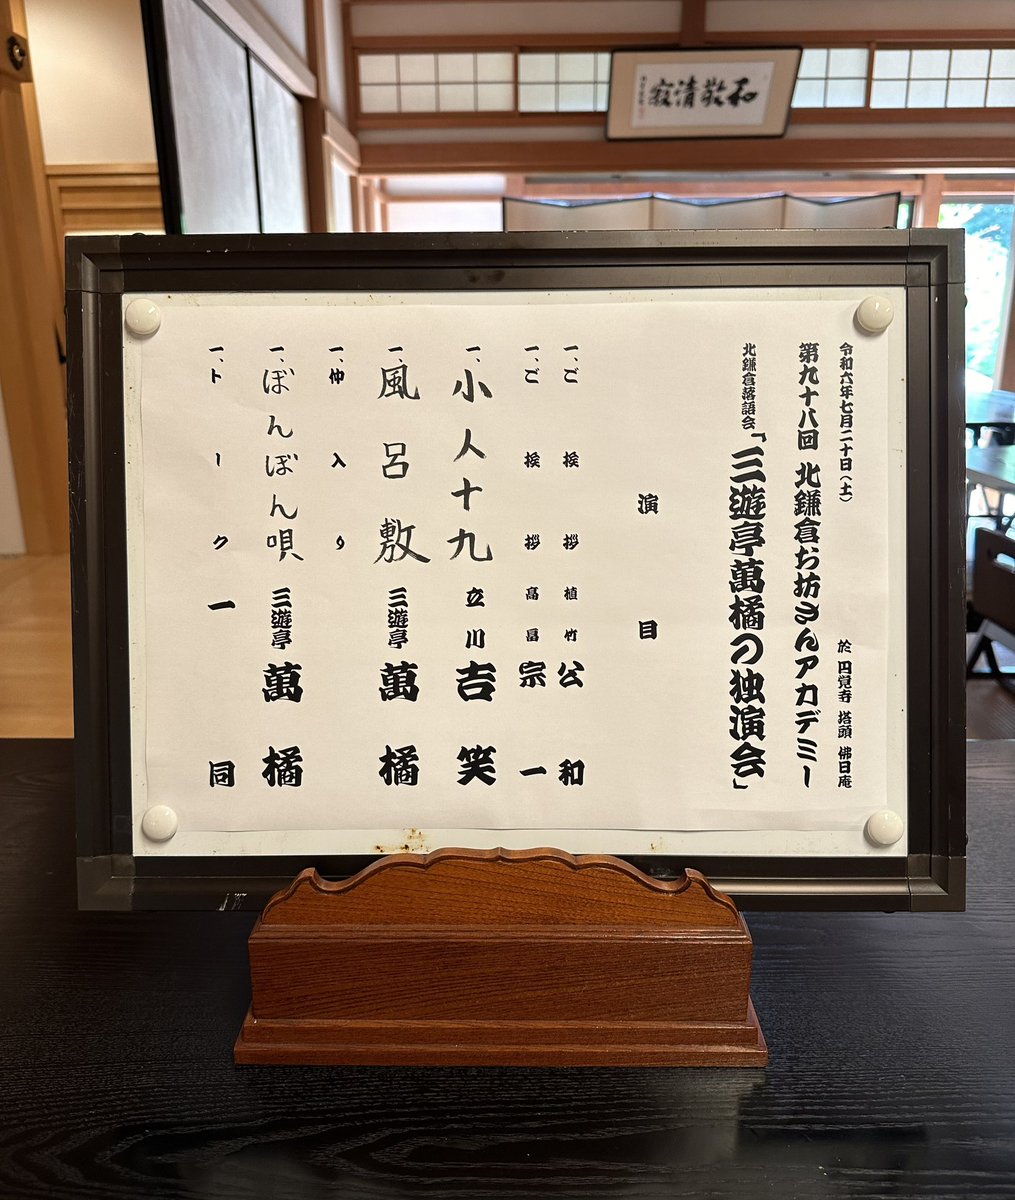 和敬清寂
令和六年七月二十日（土） 於 円覚寺 塔頭 佛日庵
第九十八回 北鎌倉お坊さんアカデミー
北鎌倉落語会「三遊亭萬橘の独演会」
演目
一、ご挨拶 植竹公和
一、ご挨拶 高冨宗一
一、小人十九 立川吉笑
一、風呂敷 三遊亭萬橘
一、仲入り
一、ぼんぼん唄 三遊亭萬橘
一、トーク 一同